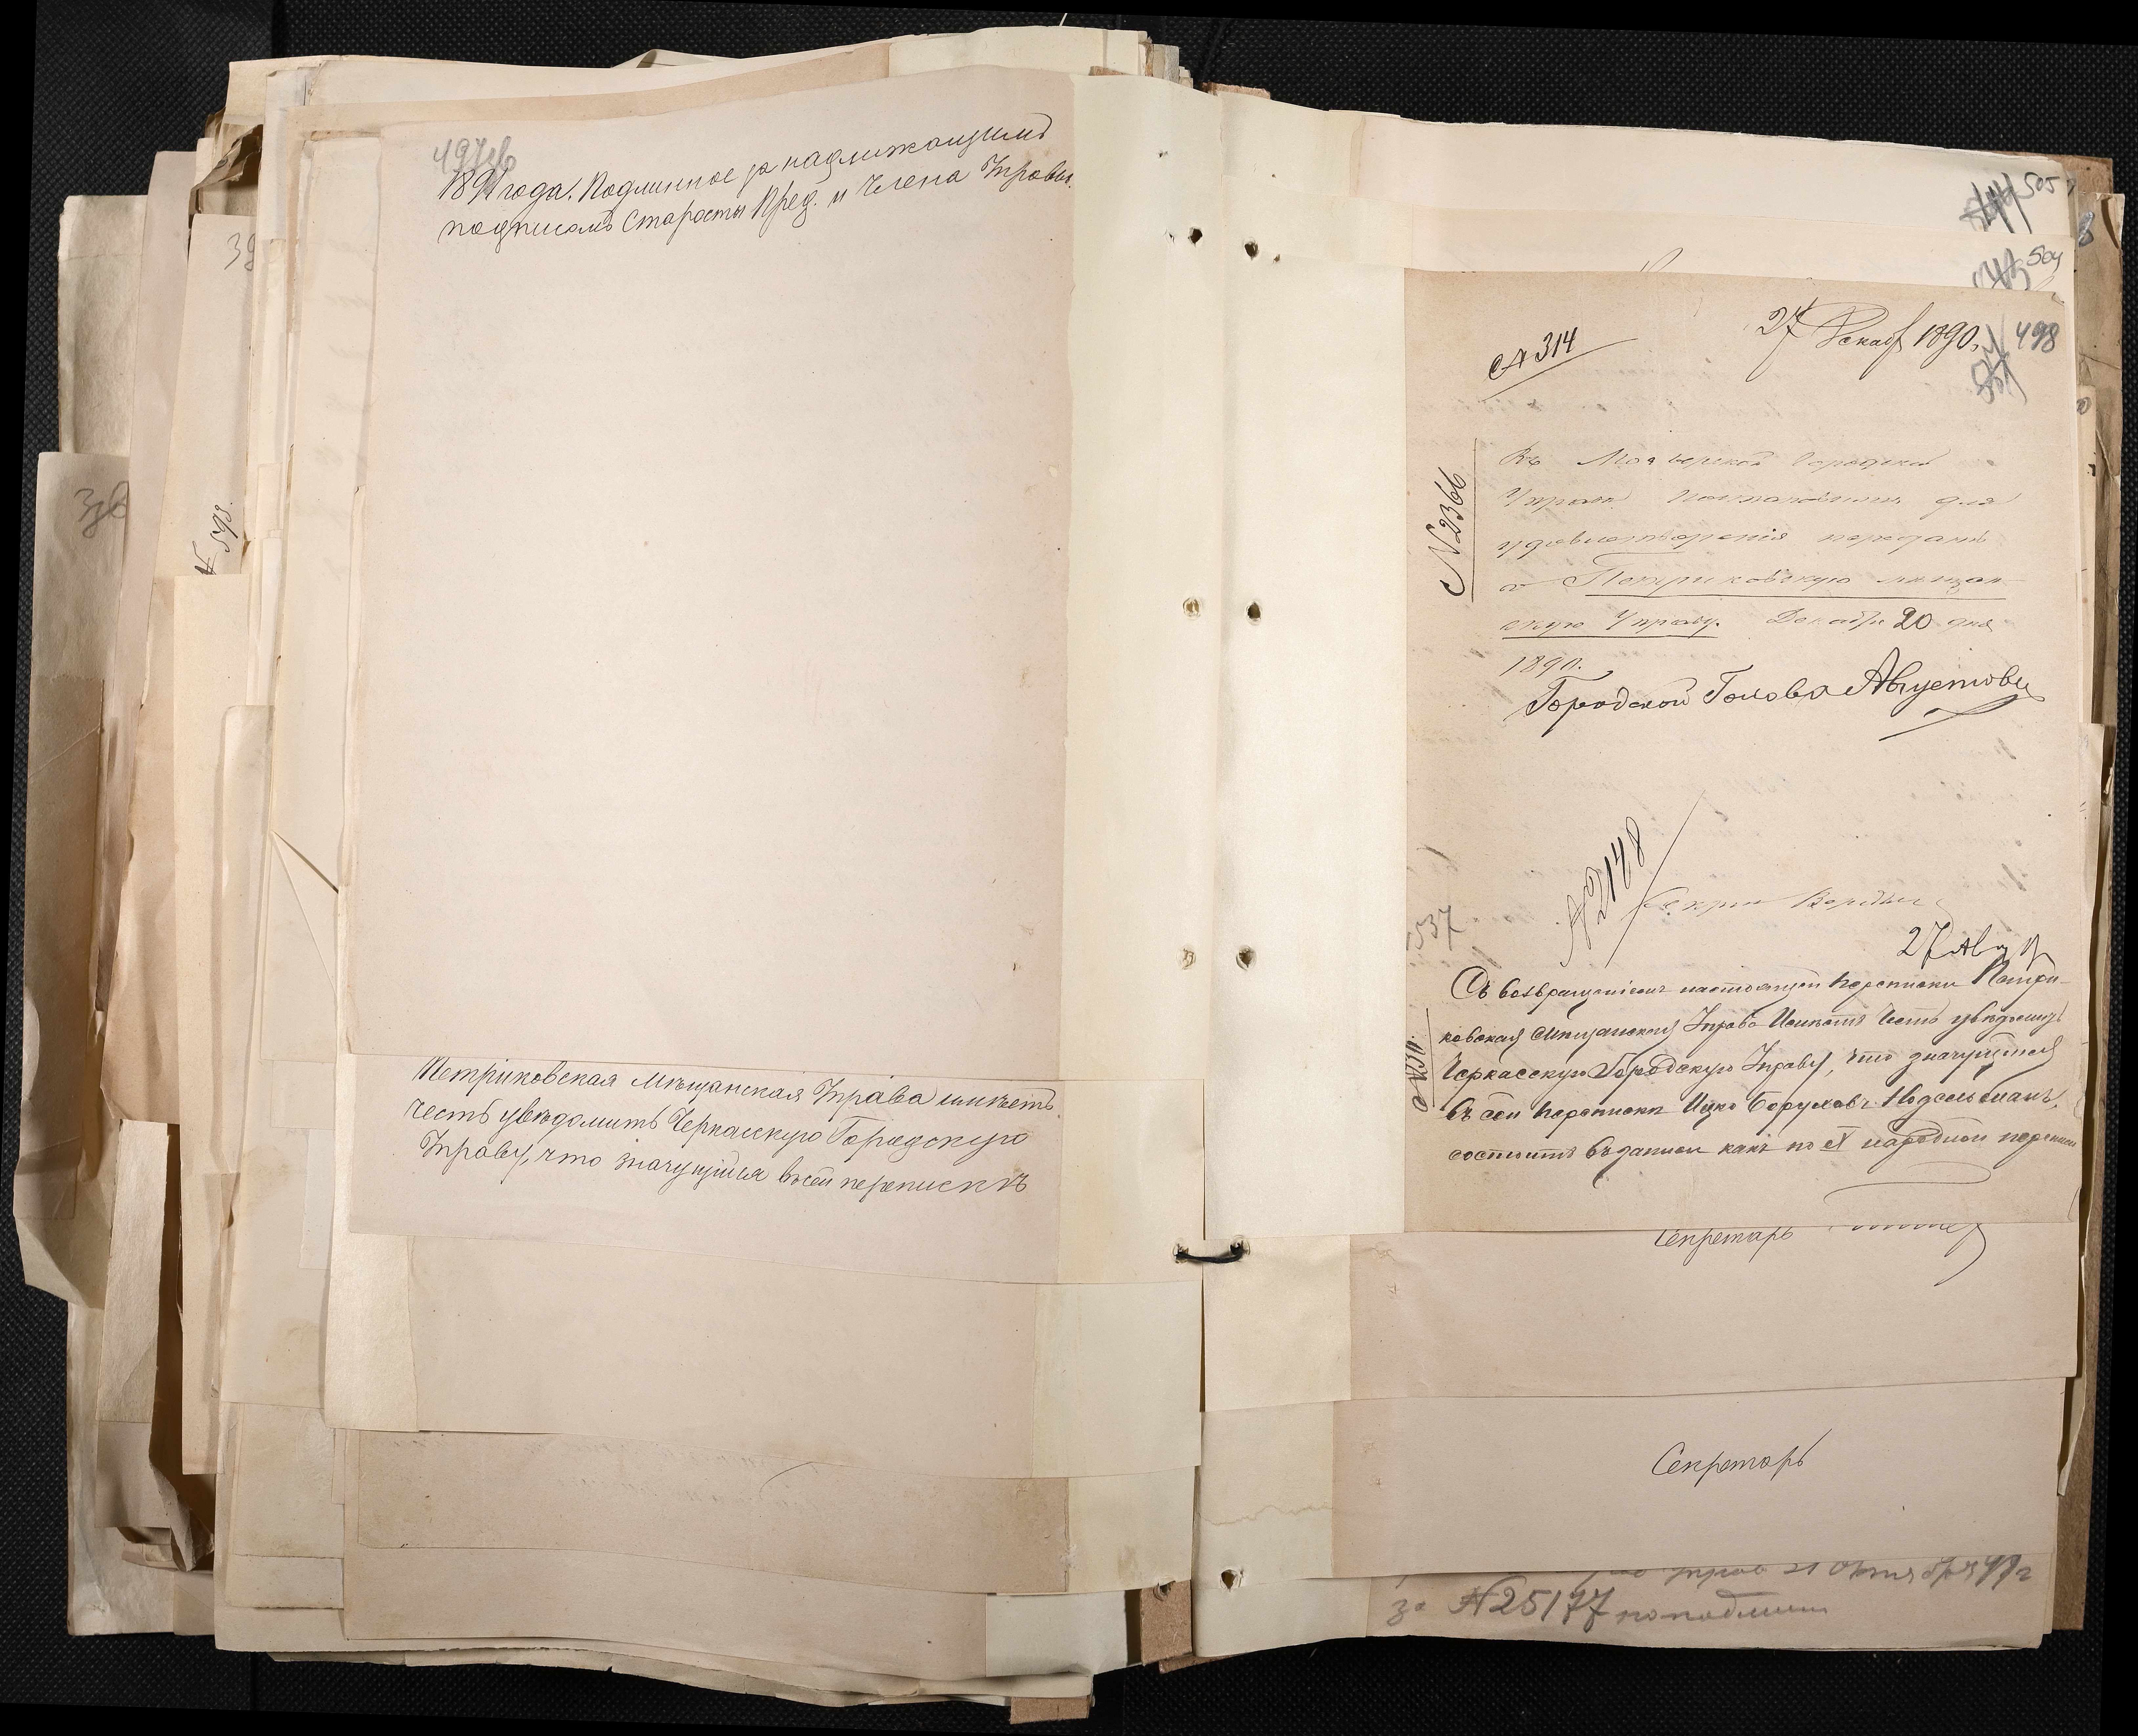 497об
1891 года. Подлинное за надлежащимъ
подписомъ Старосты Пред. и Члена Управы.
Петриковская Мѣщанская Управа имѣетъ
честь увѣдомить Черкасскую Городскую
Управу, что значущійся въ сей перепискѣ
505
504
498
№ 314
27 Декаб 1890.
№ 2366
Въ Городской
Управы для
удовлетворенія передать
въ Петриковскую мѣщан
скую Управу. Декабря 20 дня
1890.
Городской Голова Августовъ
№ 2148
537
27 Авг
Съ возвращеніемъ настоящей переписки Петри-
ковская Мѣщанская Управа имѣетъ честь увѣдомить
Черкасскую Городскую Управу, что значущійся
въ сей перепискѣ Ицко Боруховъ
состоитъ въ записи какъ по X народной переписи
Секретарь
Секретарь
21 Октября 91 г
за № 25177
398